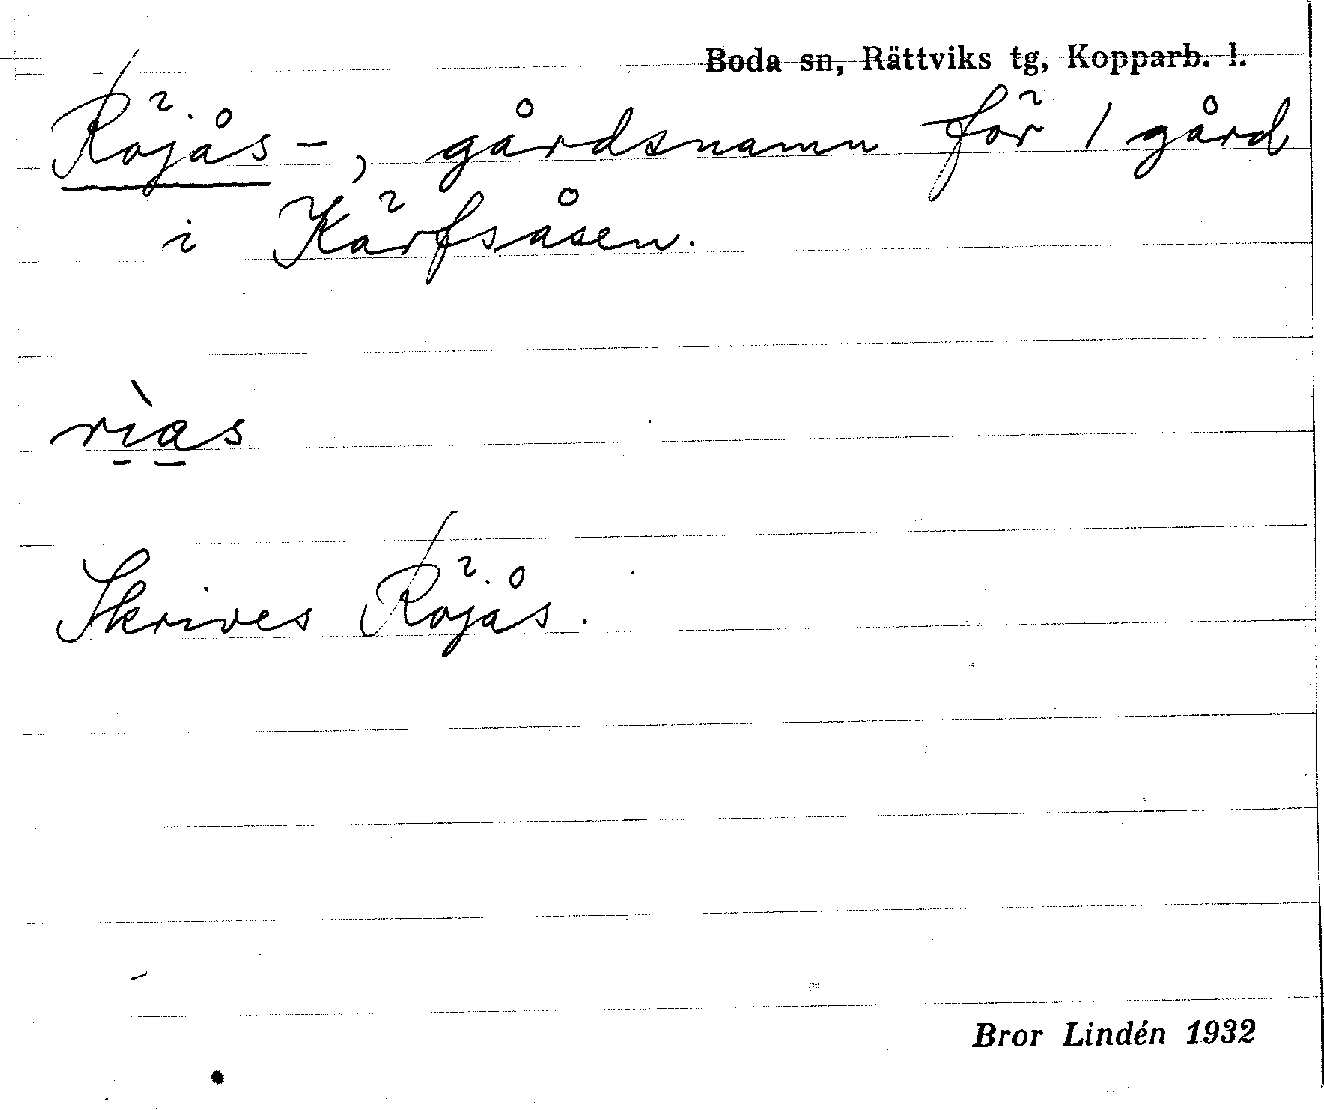 Boda sn, Rättviks tg, Kopparb. l.
Röjås-, gårdsnamn för 1 gård
i Kärfsåsen.
rìas
Skrives Röjås.
Bror Lindén 1932